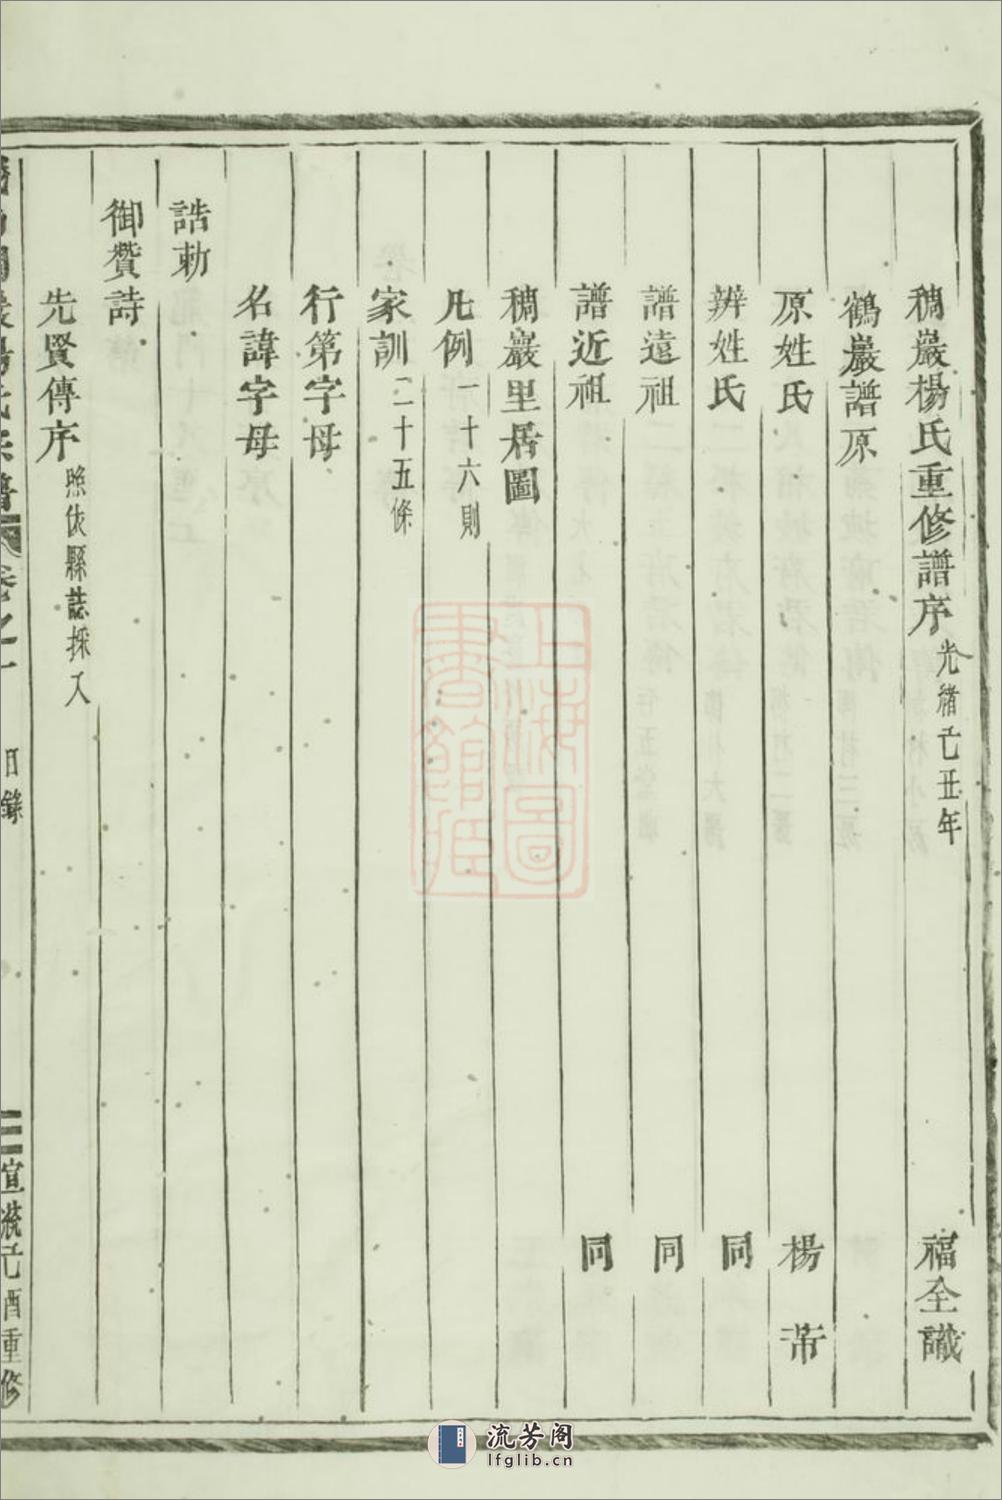 稠巖楊氏重修譜序 光緒己丑年 福全識
鶴巖譜原
原姓氏 楊 芾
辨姓氏 同
譜遠祖 同
譜近祖 同
稠巖里居圖
凡例 一十六則
家訓 二十五條
行第字母
名諱字母
誥勅
御贊詩
先賢傳序 照依縣誌採入
楊氏宗譜 卷之一 目錄 三 宣統己酉重修
上海圖書館藏
流芳阁
lfglib.cn